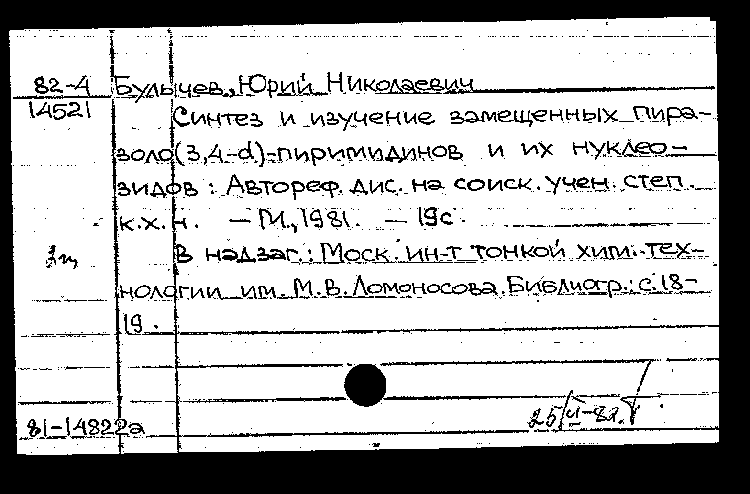 82-4 Булычев, Юрий Николаевич
14521 Синтез и изучение замещенных пира-
золо(3,4-d)-пиримидинов и их нуклео-
зидов : Автореф. дис. на соиск. учен. степ.
к.х.н. — М., 1981. — 19с.
В надзаг.: Моск. ин-т тонкой хим. тех-
нологии им. М.В. Ломоносова. Библиогр.: с.18-
19.
81-14822а